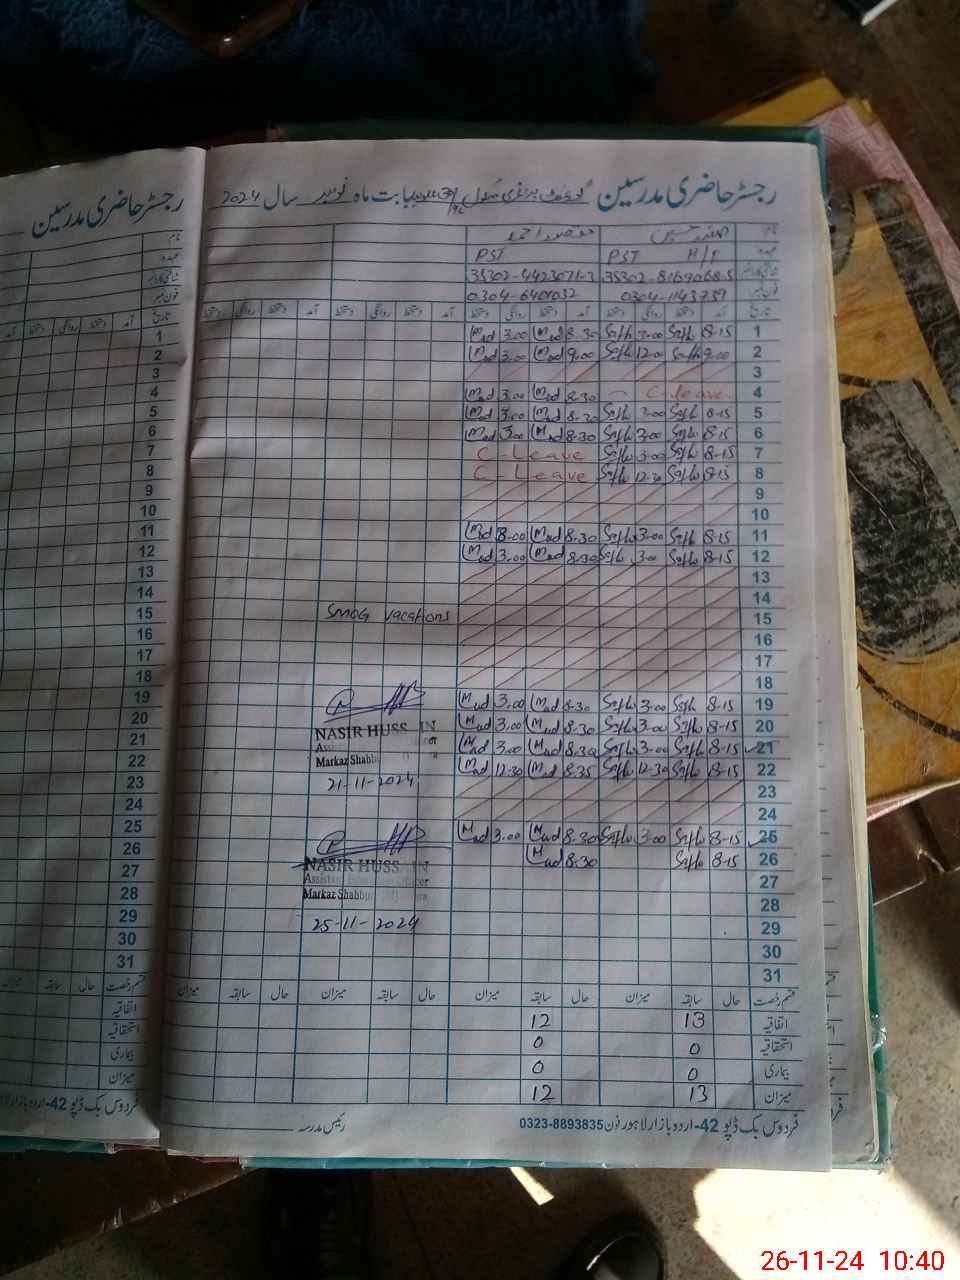 رجسٹر حاضری مدرسین گورنمنٹ پرائمری سکول بابت ماہ نومبر سال 2024
نام صفدر حسین منصور احمد
عہدہ PST H/T PST
شناختی کارڈ نمبر 35302-8169068-5 35302-4423071-3
فون نمبر 0304-1143739 0304-6401032
تاریخ آمد دستخط روانگی دستخط آمد دستخط روانگی دستخط آمد دستخط روانگی دستخط آمد دستخط روانگی دستخط
1 8-15 3-00 8-30 3.00
2 9-00 12-00 9.00 3.00
3
4 C leave 8-30 3.00
5 8-15 3-00 8-30 3.00
6 8-15 3-00 8-30 3.00
7 8-15 3-00 C-Leave
8 8-15 12-30 C-Leave
9
10
11 8-15 3-00 8-30 3-00
12 8-15 3-00 8-30 3.00
13
14
15 SMOG vacations
16
17
18
19 8-15 3-00 8-30 3.00
20 8-15 3-00 8-30 3.00
21 8-15 3-00 8-30 3.00
22 8-15 12-30 8-35 12-30
23
24
25 8-15 3-00 8-30 3.00
26 8-15 8-30
27
28
29
30
31
NASIR HUSSAIN
Markaz
21-11-2024
NASIR HUSSAIN
Assistant
Markaz
25-11-2024
قسم رخصت حال سابقہ میزان حال سابقہ میزان حال سابقہ میزان حال سابقہ میزان
اتفاقیہ 13 12
استحقاقیہ 0 0
بیماری 0 0
میزان 13 12
فردوس بک ڈپو 42-اردو بازار لاہور فون 0323-8893835 رئیس مدرسہ
رجسٹر حاضری مدرسین
نام
عہدہ
شناختی کارڈ نمبر
فون نمبر
تاریخ آمد دستخط روانگی دستخط آمد
1
2
3
4
5
6
7
8
9
10
11
12
13
14
15
16
17
18
19
20
21
22
23
24
25
26
27
28
29
30
31
قسم رخصت حال سابقہ میزان
اتفاقیہ
استحقاقیہ
بیماری
میزان
فردوس بک ڈپو 42-اردو بازار لا
26-11-24 10:40